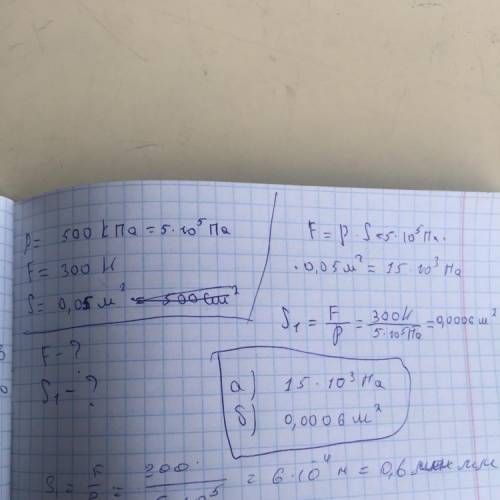 p = 500 kПа = 5·10⁵ Па
F = 300 Н
S = 0,05 м² = 500 см²
F - ?
S₁ - ?
F = p · S = 5·10⁵ Па ·
· 0,05 м² = 15·10³ Па
S₁ = F/p = 300Н/5·10⁵Па = 0,0006 м²
а) 15·10³ Па
б) 0,0006 м²
= 6·10⁻⁴ м = 0,6